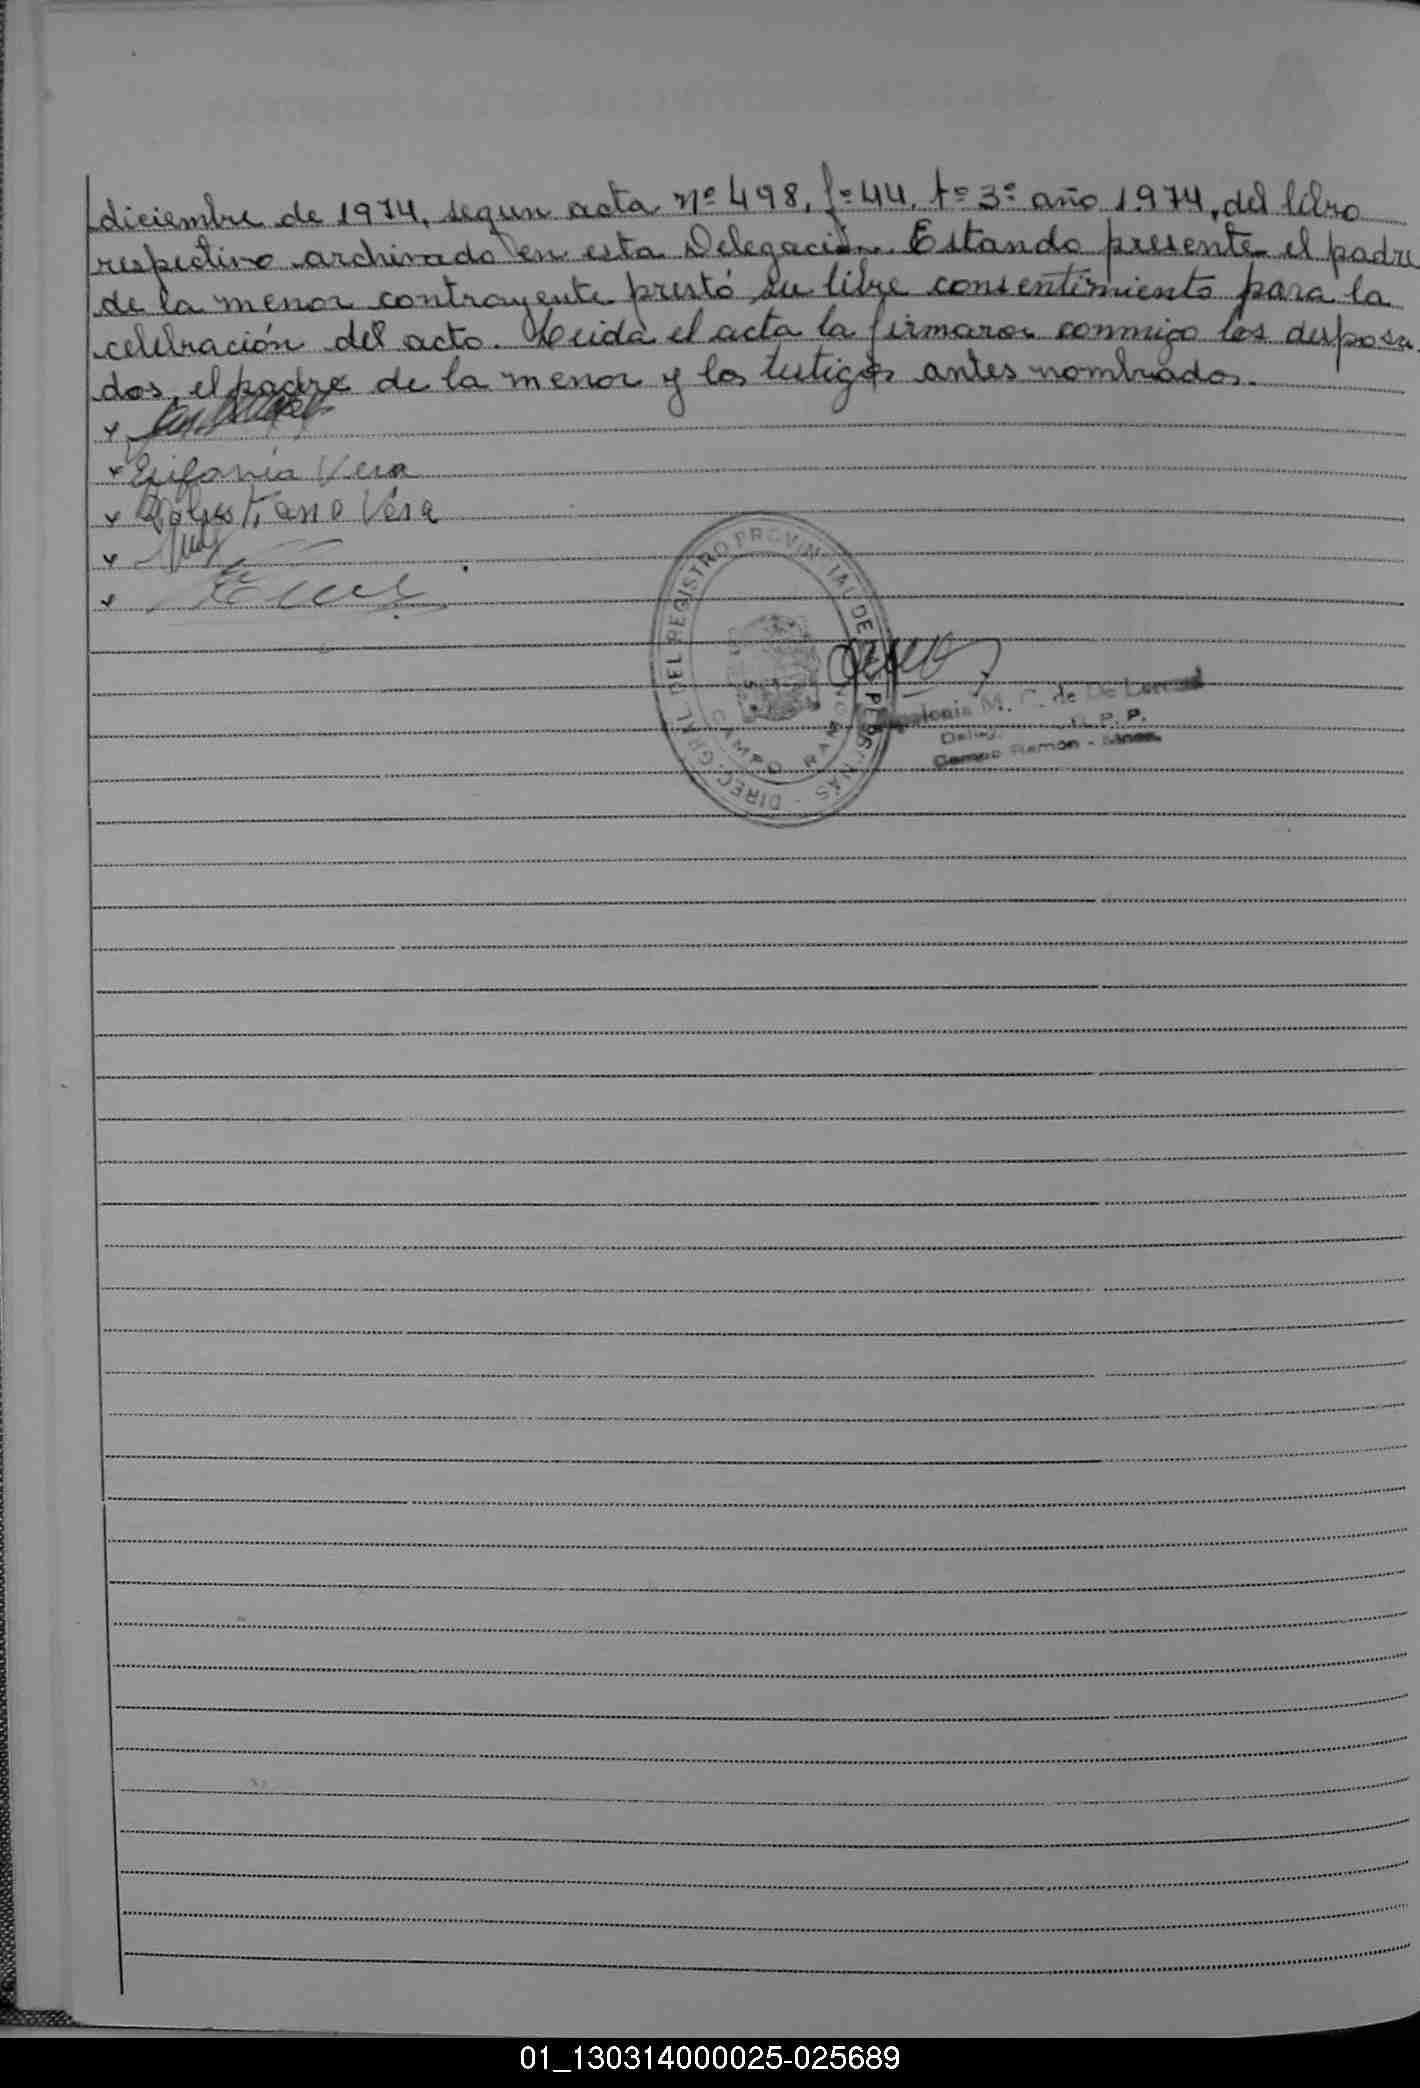 diciembre de 1974, segun acta nº 498, fº 44, tº 3º año 1974, del libro
respectivo archivado en esta Delegación. Estando presente el padre
de la menor contrayente prestó su libre consentimiento para la
celebración del acto. Leida el acta la firmaron conmigo los desposa
dos, el padre de la menor y los testigos antes nombrados.
Epifania Vera
Vera
DIREC. GRAL. DEL REGISTRO PROVINCIAL DE LAS PERSONAS
CAMPO RAMON
M. C. de De
R. P. P.
Campo Ramón - Mnes.
01_130314000025-025689